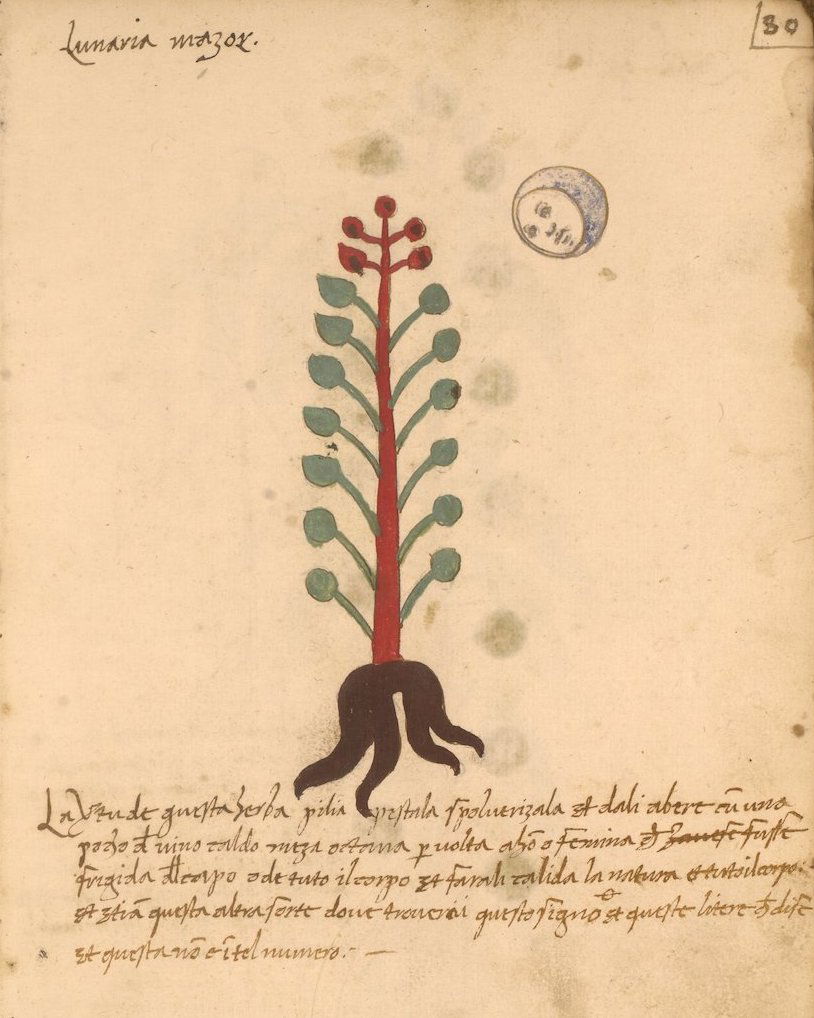 Lunaria mazor.
80
La Vtu de questa herba pilia pestala spolverizala et dali abere cū uno
pocho d vino caldo meza octava p volta a hō o femina frigida
frigida dl capo o de tuto il corpo et farali calida la natura e tuto il corpo:
et etiā questa altra sorte dove troverai questo signo et queste litere disse
et questa nō e ī tel numero.